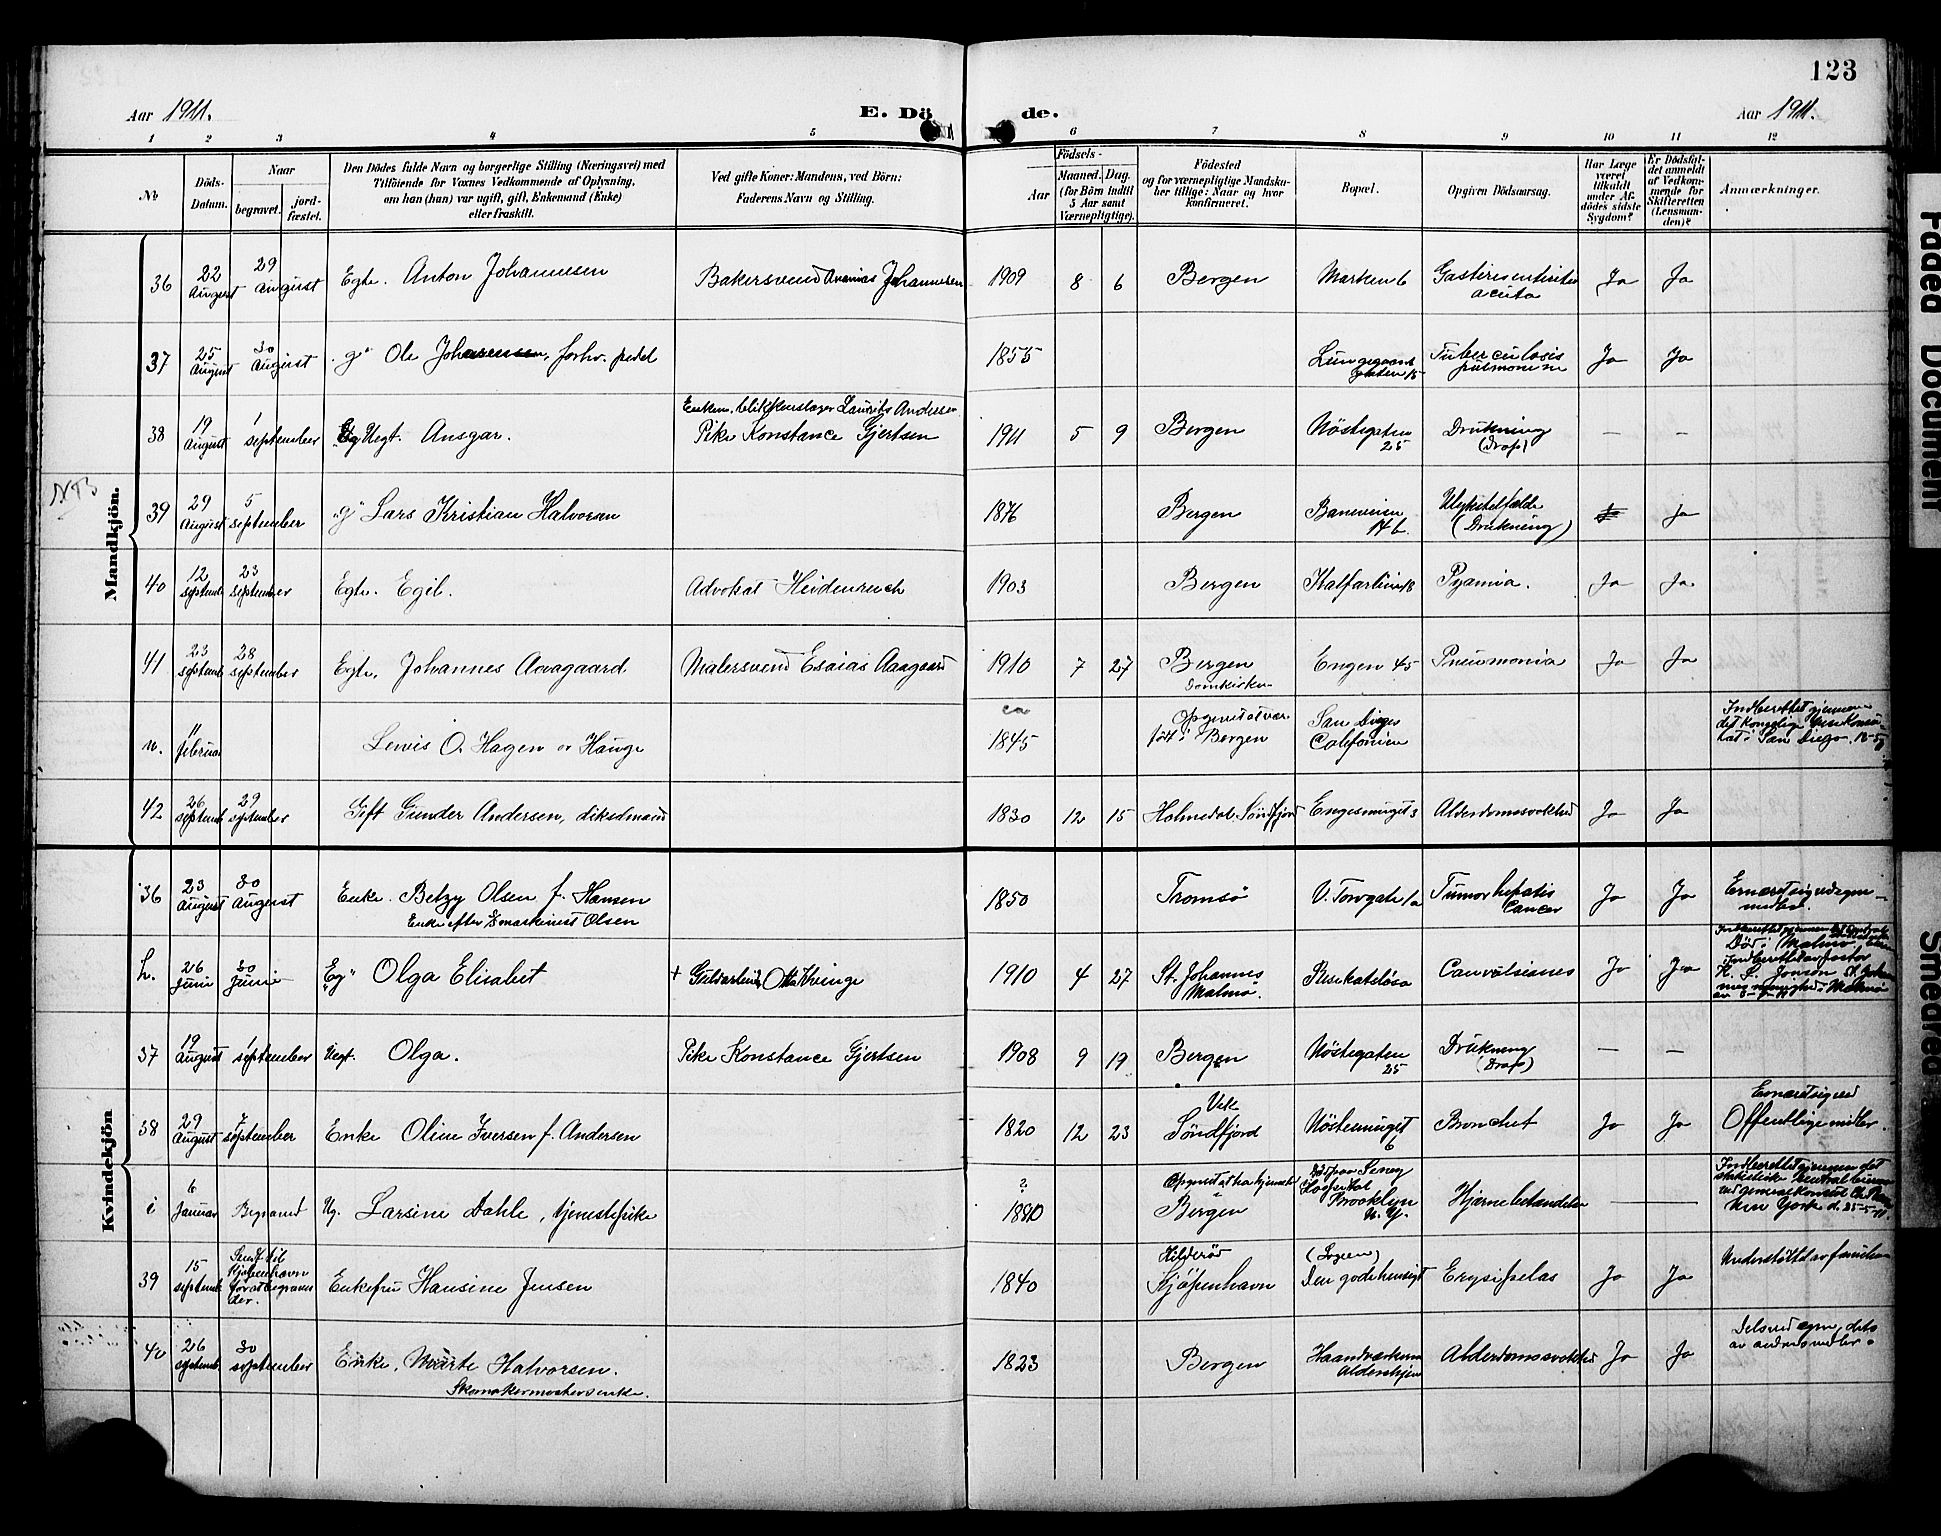 123
Aar 1911.
E. Dö
de.
Aar 1911.
1 2 3 4 5 6 7 8 9 10 11 12
No
Döds-
Datum.
Naar
begravet.
jord-
fæstet.
Den Dödes fulde Navn og borgerlige Stilling (Næringsvei) med
Tilföiende for Voxnes Vedkommende af Oplysning,
om han (hun) var ugift, gift, Enkemand (Enke)
eller fraskilt.
Ved gifte Koner: Mandens, ved Börn:
Faderens Navn og Stilling.
Födsels-
Aar
Maaned.
Dag.
(for Börn indtil
5 Aar samt
Værnepligtige).
Födested
og for værnepligtige Mandska-
ber tillige: Naar og hvor
konfirmeret.
Bopæl.
Opgiven Dödsaarsag.
Har Læge
været
tilkaldt
under Af-
dödes sidste
Sygdom?
Er Dödsfal-
det anmeldt
af Vedkom-
mende for
Skifteretten
(Lensman-
den)?
Anmærkninger.
Mandkjön.
36 22 August 29 August Egte. Anton Johannesen Bakersvend Ananias Johannesen 1909 8 6 Bergen Marken 6 Gastroenteritis acuta Ja Ja
37 25 August 30 August g. Ole Johannesen, forhv. pedel 1855 Lungegaards gaten 15 Tuberculosis pulmonum Ja Ja
38 19 August 1 september Uegt. Ansgar. Enkem. blikkenslager Laurits Andersen
Pike Konstance Gjertsen 1911 5 9 Bergen Nöstegaten 25 Drukning (Drap) — —
NB
39 29 August 5 september g. Lars Kristian Halvorsen 1876 Bergen Baneveien 14 b. Ulykkestilfælde (Drukning) ja
40 12 septemb 23 september Egte. Egil. Advokat Heidenreich 1903 Bergen Kalfarlien 18 Pyæmia. Ja Ja
41 23 septemb 28 september Egte. Johannes Aavagaard Malersvend Esaias Aaagaard 1910 7 27 Bergen Domkirken Engen 45 Pneumonia Ja Ja
n. 11 februar Lewis O. Hagen or Hauge ca 1845 Opgivet at være född i Bergen San Diego Californien Indberettet gjennem det kongelige Vicekonsulat i San Diego.
42 26 septemb 29 september Gift Gunder Andersen, diksdmand 1830 12 15 Holmedal Söndfjord Engesmuget 3 Alderdomssvakhed Ja Ja
Kvindekjön
36 23 August 30 August Enke. Betzy Olsen f. Hansen
Enke efter maskinist Olsen 1850 Tromsö V. Torvgate 1a Tumor hepatis Cancer Ja Ja Ernæret sig ved egne midler.
h. 26 Juni 30 Juni Eg. Olga Elisabet + Guldarbeid. Otto Kvinge 1910 4 27 St. Johannes Malmö. Convulsiones Ja Ja Död i Malmö
37 19 August 1 september Uegt. Olga. Pike Konstance Gjertsen 1908 9 19 Bergen Nöstegaten 25 Drukning (Drap) — —
38 29 August 7 september Enke Oline Iversen f. Andersen 1820 12 23 Vik Söndfjord Nöstesmuget 6 Bronchit Ja Ja Ernæret sig ved Offentlige midler.
i 6 Januar Begraved Ug. Larsine Dahle, tjenestepike ? 1880 Bergen Död paa Seney Hospital Brooklyn N. Y. Hjernebetændelse — — Indberettet gjennem det statistiske Centralbureau ved generalkonsul New York d. 25-5-11.
39 15 septemb Sendt til Kjöbenhavn for at begraves der. Enkefru Hansine Jensen 1840 Hilderöd Kjöpenhavn (Logen) Den gode hensigt Erysipelas Ja Ja Understöttet av familien
40 26 septemb 30 september Enke, Marte Halvorsen.
Skomakermesters enke. 1823 Bergen Haandværkernes Aldershjem Alderdomssvakhed Ja Ja Dels ved egne, dels av andres midler.
Faded Document
Smeared